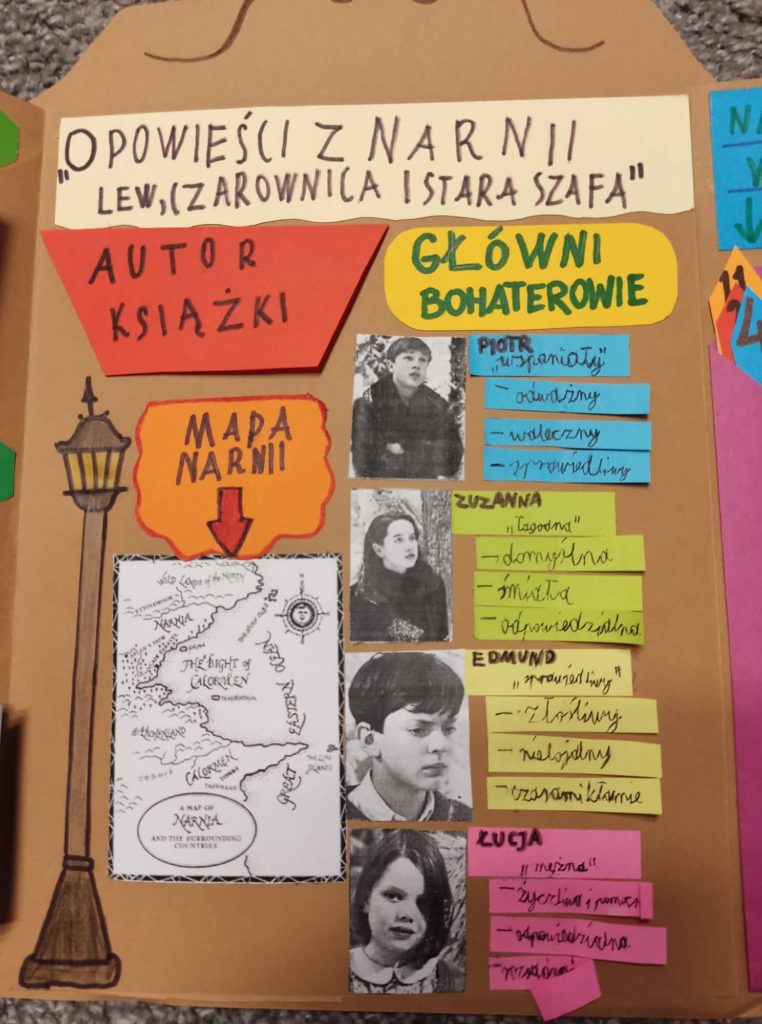 "OPOWIEŚCI Z NARNII
LEW, CZAROWNICA I STARA SZAFA"
AUTOR
KSIĄŻKI
GŁÓWNI
BOHATEROWIE
MAPA
NARNII
WILD LANDS of the NORTH
ETTINSMOOR
NARNIA
THE BIGHT of
CALORMEN
ARCHENLAND
desert
CALORMEN
TOMBS
TASHBAAN
GREAT EASTERN OCEAN
A MAP OF
NARNIA
AND THE SURROUNDING
COUNTRIES
PIOTR
„wspaniały"
- odważny
- waleczny
- sprawiedliwy
ZUZANNA
„Łagodna"
- domyślna
- śmiała
- odpowiedzialna
EDMUND
„sprawiedliwy"
- złośliwy
- nielojalny
- czasami kłamie
ŁUCJA
„mężna"
- życzliwa i
- odpowiedzialna